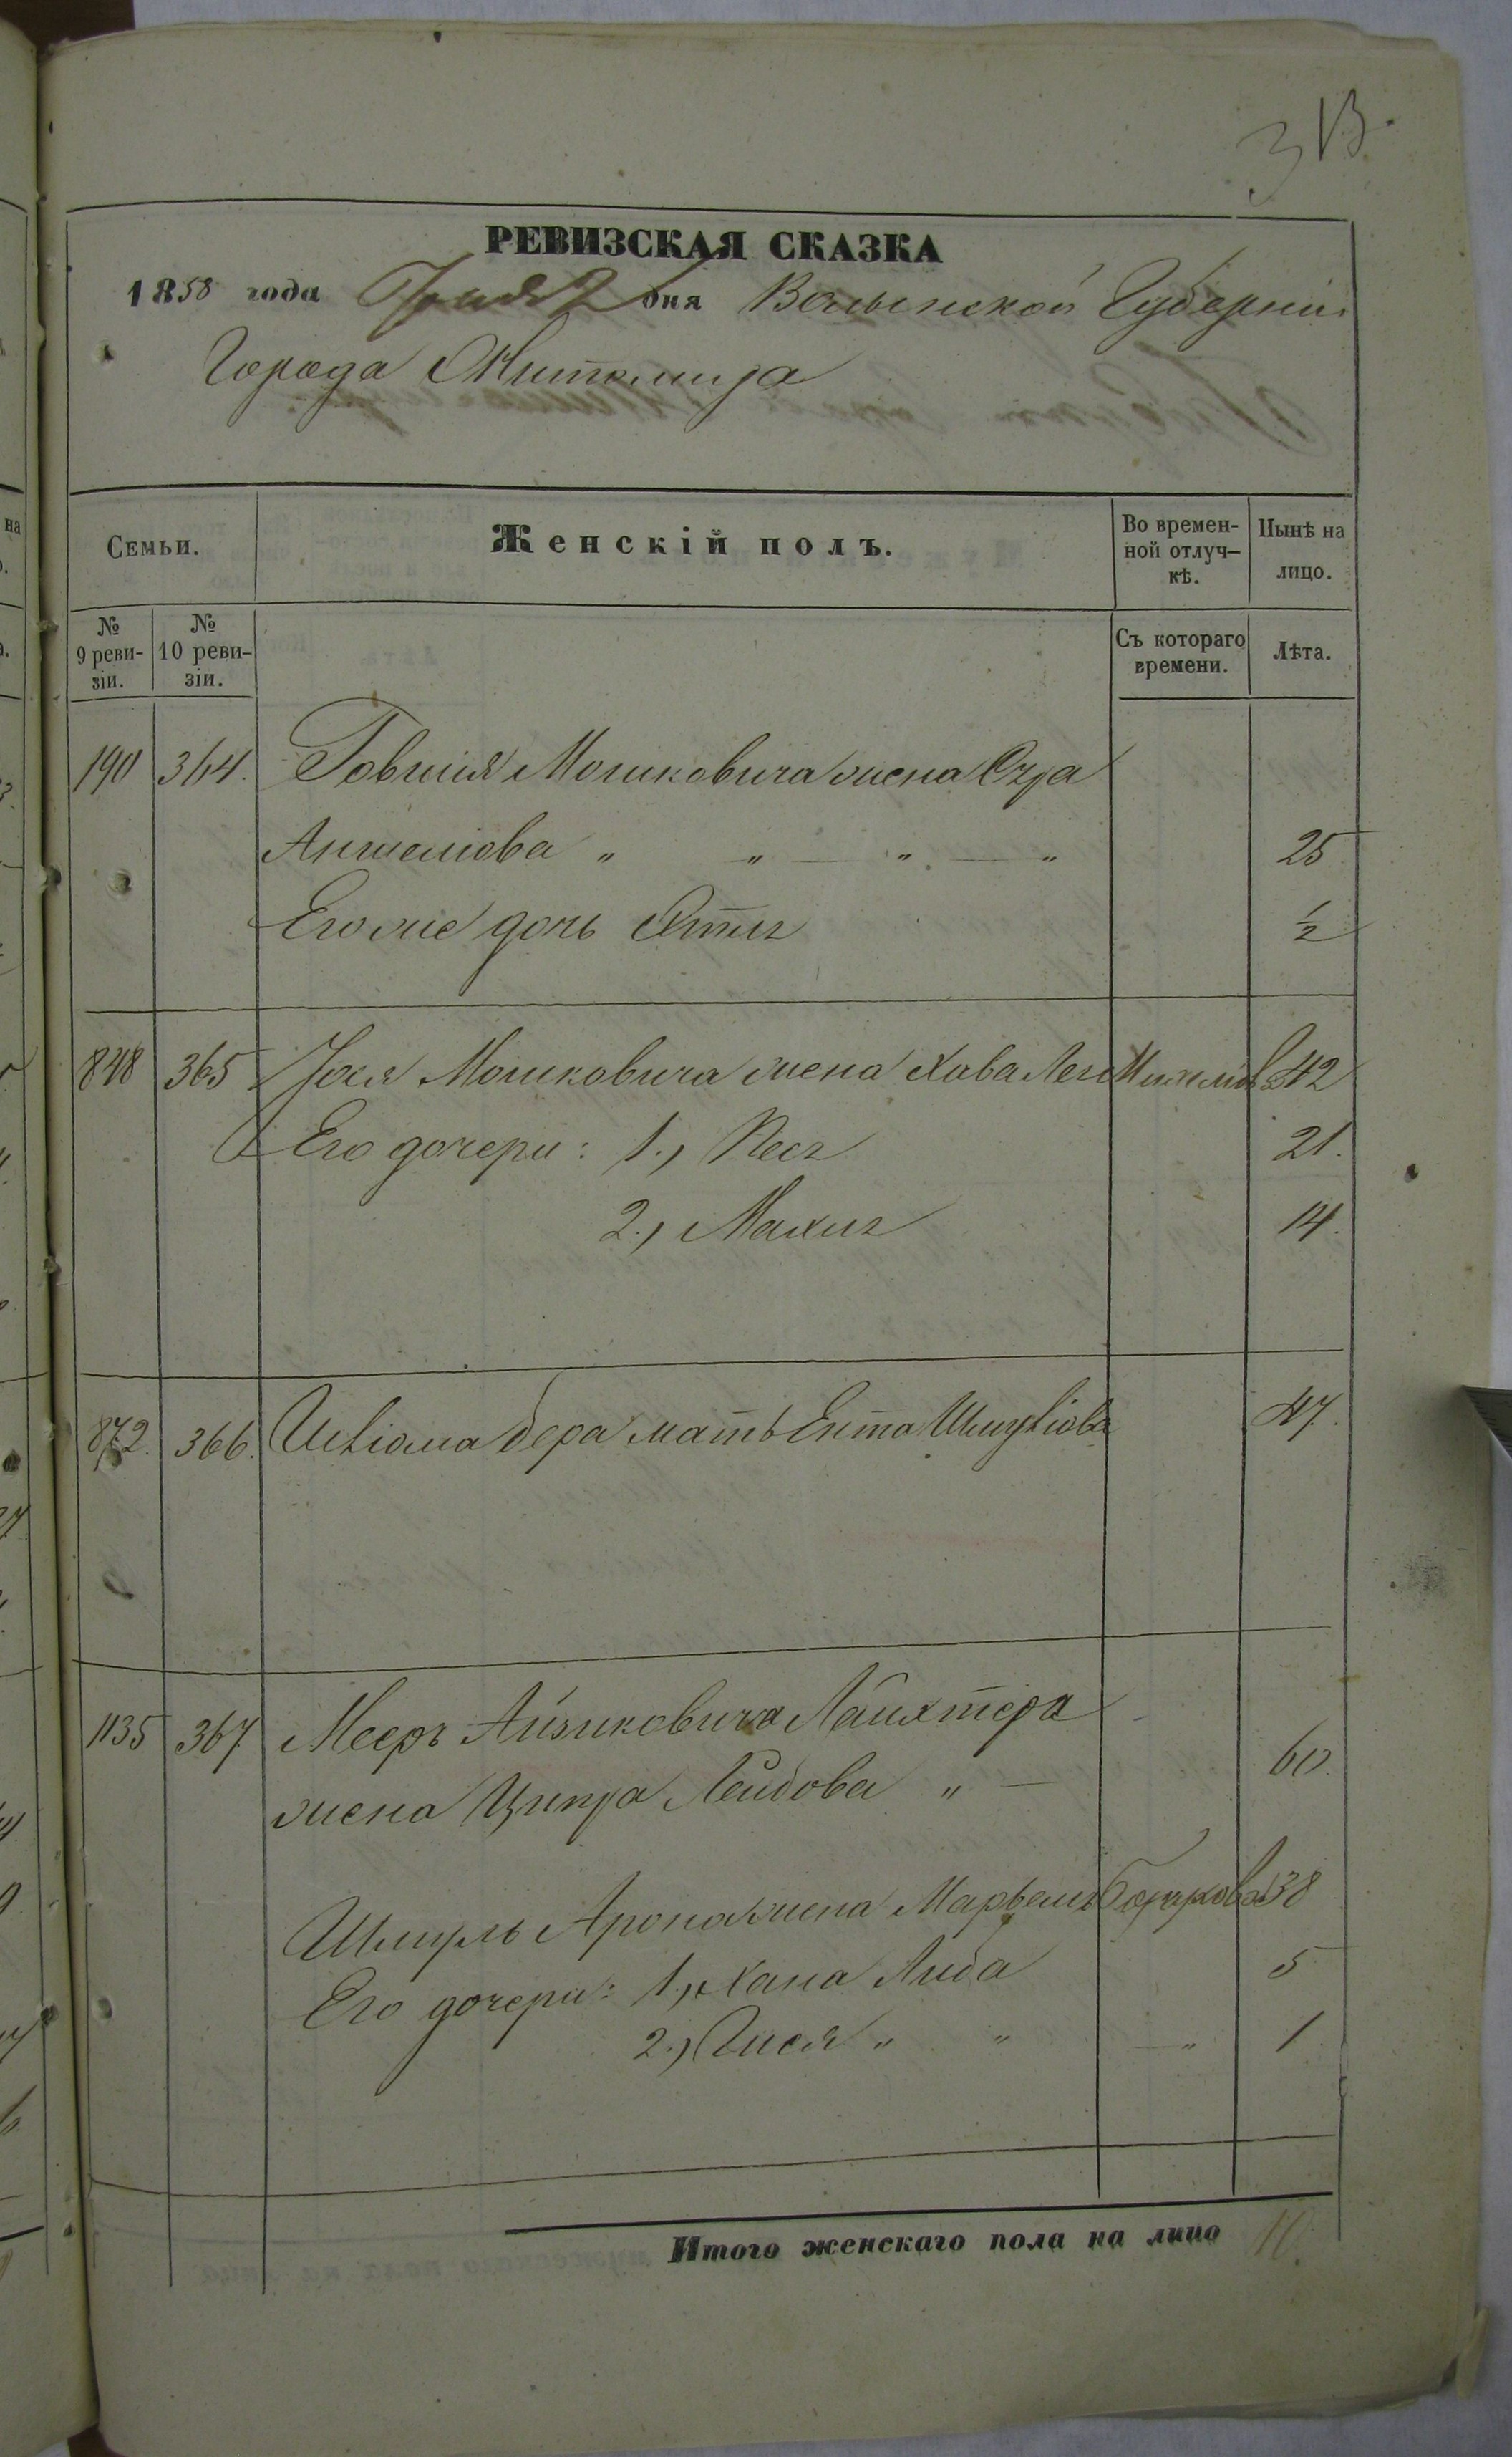 313.
РЕВИЗСКАЯ СКАЗКА
1858 года Іюня 2 дня Волынской Губерніи
Города Житомира
Семьи.
Женскій полъ.
Во времен-
ной отлуч-
кѣ.
Нынѣ на
лицо.
№
9 реви-
зіи.
№
10 реви-
зіи.
Съ котораго
времени.
Лѣта.
190 364. Говшія Мошковича жена
Аншеліова " " — " — " 25
Его же дочь 1/2
848 365 Іося Мошковича жена Хава Лея 42
Его дочери: 1., Песя 21.
2., Махля 14.
872. 366. Бера мать Ента Шмуліова 47.
1135 367 Мееръ Айзиковича Лайхтера
жена Ципра Лейбова " — 60.
Шмуль Арона жена 38
Его дочери: 1., Хана Либа 5
2.) " " — " 1
Итого женскаго пола на лицо 10.